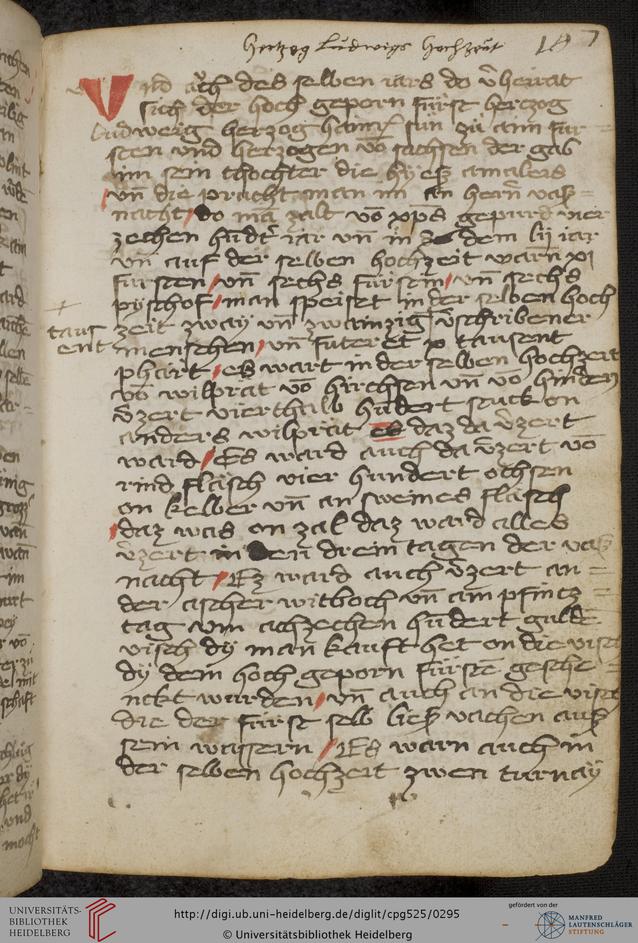 hertzog Ludwigs hochzeut 187
Vnd auch des selben iars do v̄heirat
sich der hoch geporn fürst hertzog
Ludweig herzog hainr̄ sun zu ainn fur
sten vnd hertzogen vō sachsen der gab
im sein thochter die hyeß amaleys
vn̄ die pracht man im an hern̄ vaß=
nacht / do mā zalt vō xp̄s gepurd vier
zechen hūdt iar vn̄ in dem lij iar
vn̄ auf der selben hochzeit warn xj
fürsten / vn̄ sechs fürstin / vn̄ sechs
pyschof / man speiset in der selben hoch
zeit zway vn̄ zwainzig v̄schribener
taus
ent
menschen / vn̄ futeret x tausent
phärt / es wart in der selben hochzeit
vō wilprät vō hirchsen vn̄ vō hinden
v̄zert vierthalb hūdert stuck on
anders wilprät es daz da v̄zert
ward / Es ward auch da v̄zert vō
rind flaisch vier hundert ochsen
on kelber vn̄ an sweines flasch
/ daz was on zal daz ward alles
v̄zert in den drein tagen der vas
nacht / Ez ward auch v̄zert an=
der ascher mitboch vn̄ am pfincz
tag vm achzechen hūdert guldē
visch dy man kauft het on die visch
dy dem hoch geporn fürstē gesche
nckt wurden / vn̄ auch an die visch
die der fürst selb ließ vachen auß
sein wassern / Es warn auch in
der selben hochzeit zwen turnay
UNIVERSITÄTS-
BIBLIOTHEK
HEIDELBERG
http://digi.ub.uni-heidelberg.de/diglit/cpg525/0295
© Universitätsbibliothek Heidelberg
gefördert von der
MANFRED
LAUTENSCHLÄGER
STIFTUNG